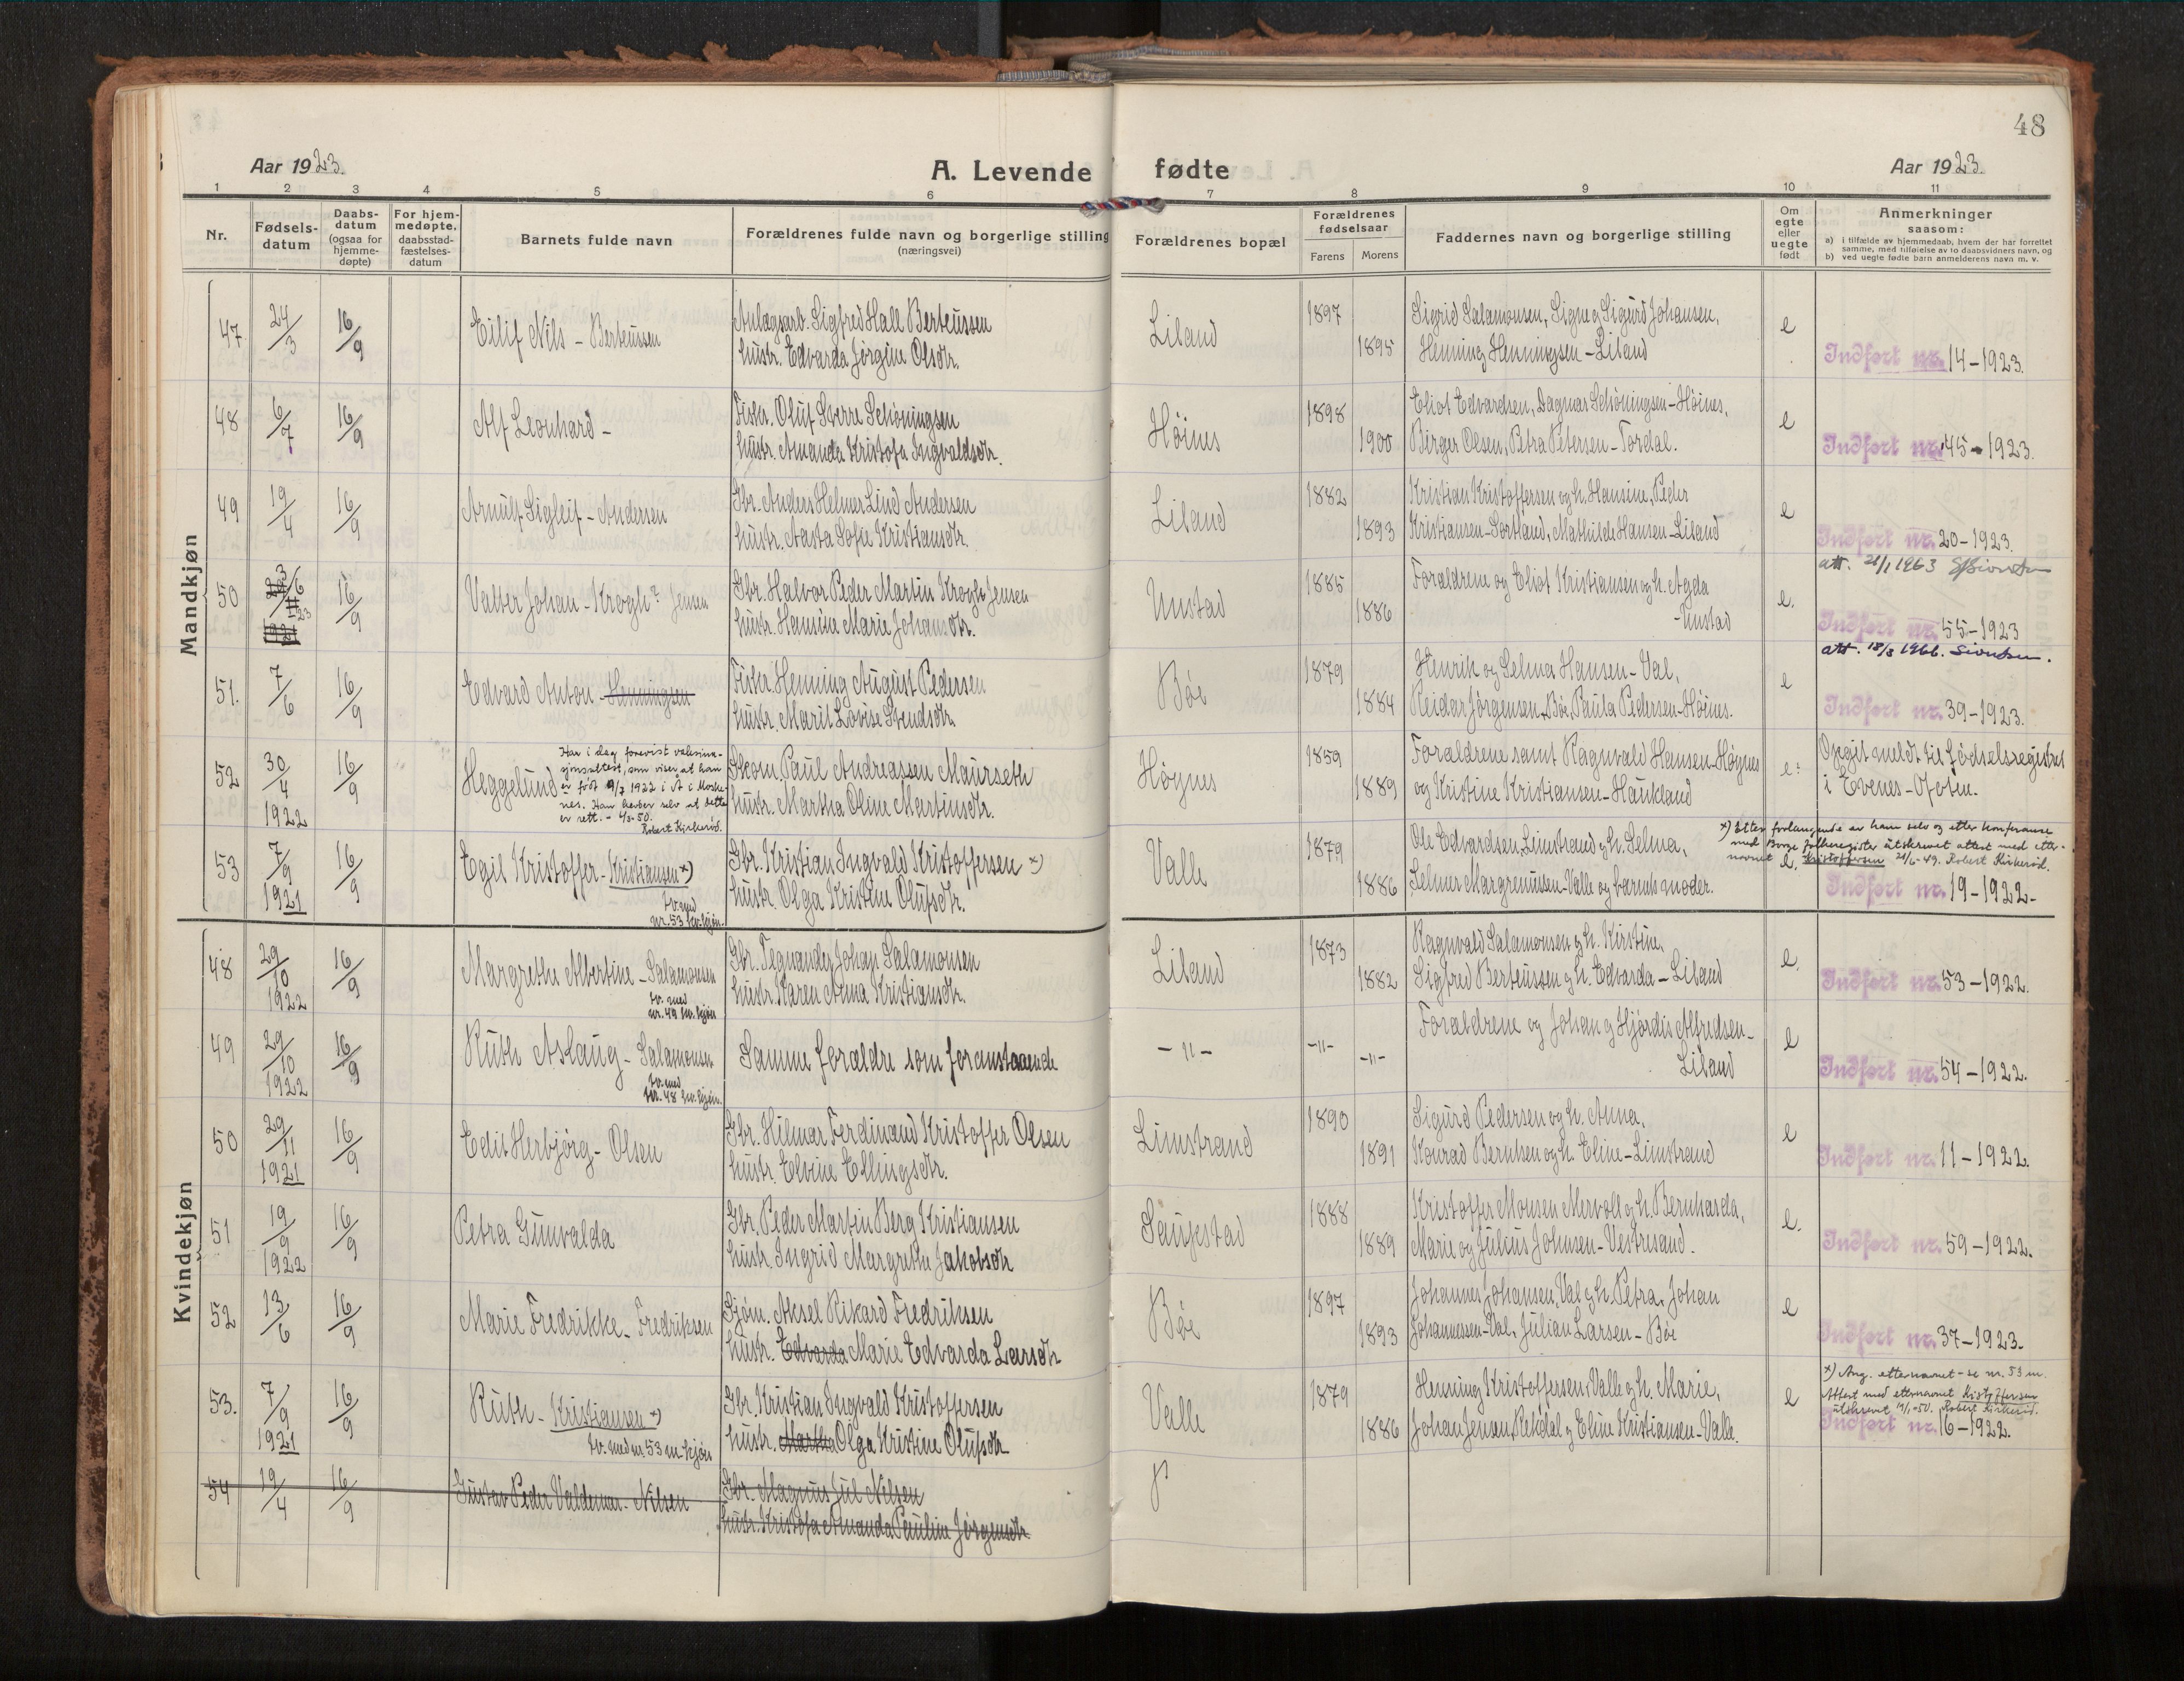 48
Aar 1923.
A. Levende fødte
Aar 1923.
1 2 3 4 5 6 7 8 9 10 11
Nr.
Fødselsdatum
Daabsdatum (ogsaa for hjemmedøpte)
For hjemmedøpte. daabsstadfæstelsesdatum
Barnets fulde navn
Forældrenes fulde navn og borgerlige stilling
(næringsvei)
Forældrenes bopæl
Forældrenes fødselsaar
Farens Morens
Faddernes navn og borgerlige stilling
Om egte eller uegte født
Anmerkninger
saasom:
a) i tilfælde av hjemmedaab, hvem der har forrettet samme, med tilføielse av to daabsvidners navn, og
b) ved uegte fødte barn anmelderens navn m. v.
Mandkjøn
47 24/3 16/9 Eilif Nils - Berteussen Anlægsarb. Sigfred Hall Berteussen Liland 1897 Sigrid Salamonsen, Signe og Sigurd Johansen, e
hustr. Edvarda Jørgine Olsdtr. 1895 Henning Henningsen - Liland Indført nr. 14-1923.
48 6/7 16/9 Alf Leonhard - Fisker. Oluf Sverre Schøningsen Høines 1898 Eliot Edvardsen, Dagmar Schøningsen - Høines, e
hustr. Amanda Kristofa Ingvaldsdtr. 1900 Birger Olsen, Petra Petersen - Tordal. Indført nr. 45-1923.
49 19/4 16/9 Arnulf Sigleif - Andersen Gbr. Anders Helmer Lind Andersen Liland 1882 Kristian Kristoffersen og h. Hansine, Peder e
hustr. Aasta Sofie Kristiansdtr. 1893 Kristiansen - Sortland, Mathilde Hansen - Liland Indført nr. 20-1923.
att. 21/1 1963
50 23/6 23 1921 16/9 Valter Johan - Krogh? Jensen Gbr. Halvor Peder Martin Krogh Jensen Unstad 1885 Forældrene og Eliot Kristiansen og h. Agda e.
hustr. Hansine Marie Johansdtr. 1886 - Unstad Indført nr. 55-1923
att. 18/8 1966. Sivertsen.
51. 7/6 16/9 Edvard Anton - Henningsen Fisker Henning August Pedersen Bøe 1879 Henrik og Selma Hansen - Val, e
hustr. Marit Lovise Svendsdtr. 1884 Reidar Jørgensen - Bøe, Paula Pedersen - Høines. Indført nr. 39-1923.
52 30/4 1922 16/9 Heggelund Skom. Paul Andreassen Maurseth Høynes 1859 Forældrene samt Ragnvald Hansen - Høynes e:
hustr. Martha Oline Martinsdtr. 1889 og Kristine Kristiansen - Haukland
Har i dag forevist vaksinasjonsattest, som viser at han
er født 9/7 1922 i Å i Moskenes. Han hevder selv at dette
er rett. - 4/3-50.
Robert Kirkerød.
Opgit meldt til fødselsregistret
i Evenes - Ofoten.
53 7/9 1921 16/9 Egil Kristoffer - Kristiansen x) Gbr. Kristian Ingvald Kristoffersen x) Valle 1879 Ole Edvardsen, Limstrand og h. Selma, e.
hustr. Olga Kristine Olufsdtr. 1886 Selmer Margrenussen - Valle og barnets moder. Indført nr. 19-1922-
Tv. med
nr. 53 kv. kjøn.
x) Etter forlangende av ham selv og etter konferanse
med Borge folkeregister utskrevet attest med etternavnet Kristoffersen 21/6-49. Robert Kirkerød.
Kvindekjøn
48 29/10 1922 16/9 Margrethe Albertine - Salamonsen Gbr. Tegnander Johan Salamonsen Liland 1873 Ragnvald Salamonsen og h. Kirstine, e.
hustr. Karen Anna Kristiansdtr. 1882 Sigfred Berteussen og h. Edvarda - Liland Indført nr. 53-1922.
tv. med
nr. 49 kv. kjøn
49 29/10 1922 16/9 Ruth Aslaug - Salamonsen Samme forældre som foranstaaende - " - -"- -"- Forældrene og Johan og Hjørdis Alfredsen - e
Liland Indført nr. 54-1922.
tv. med
nr. 48 kv. kjøn.
50 29/11 1921 16/9 Edit Herbjørg - Olsen Gbr. Hilmar Ferdinand Kristoffer Olsen Limstrand 1890 Sigurd Pedersen og h. Anna, e
hustr. Elvine Ellingsdtr. 1891 Konrad Berntsen og h. Eline - Limstrand Indført nr. 11-1922.
51 19/9 1922 16/9 Petra Gunvalda Gbr. Peder Martin Berg Kristiansen Saupstad 1888 Kristoffer Monsen Mervoll og h. Bernharda, e.
hustr. Ingrid Margrethe Jakobsdtr 1889 Marie og Julius Johnsen - Vestresand. Indført nr. 59-1922.
52 13/6 16/9 Marie Fredrikke - Fredriksen Sjøm. Aksel Rikard Fredriksen Bøe 1897 Johannes Johansen, Val og h. Petra, Johan e
hustr. Edvarda Marie Edvarda Larsdtr 1893 Johannessen - Val, Julian Larsen - Bøe Indført nr. 37-1923.
53. 7/9 1921 16/9 Ruth - Kristiansen x) Gbr. Kristian Ingvald Kristoffersen Valle 1879 Henning Kristoffersen, Valle og h. Marie, e
hustr. Martha Olga Kristine Olufsdtr. 1886 Johan Jensen Rekdal og Eline Kristiansen - Valle. Indført nr. 16-1922.
tv. med nr. 53 m. kjøn
x) Ang. etternavnet - se nr. 53 m.
Attest med etternavnet Kristoffersen
utskrevet 19/1-50. Robert Kirkerød.
54 19/4 16/9 Gustav Peder Valdemar - Nilsen Gbr. Magnus Jul Nilsen
hustr. Kristofa Amanda Pauline Jørgensdtr.